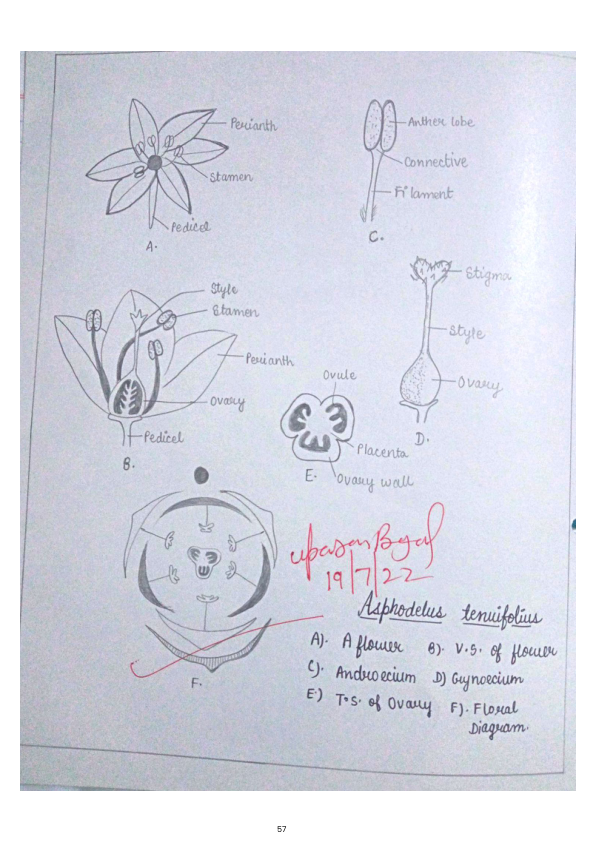 Perianth
Stamen
Pedicel
A.
Anther lobe
Connective
Filament
C.
Style
Stamen
Perianth
Ovary
Pedicel
B.
Stigma
Style
Ovary
D.
Ovule
Placenta
Ovary wall
E.
F.
19/7/22
Asphodelus tenuifolius
A). A flower B). V.S. of flower
C). Androecium D) Gynoecium
E.) T.S. of Ovary F). Floral
Diagram.
57